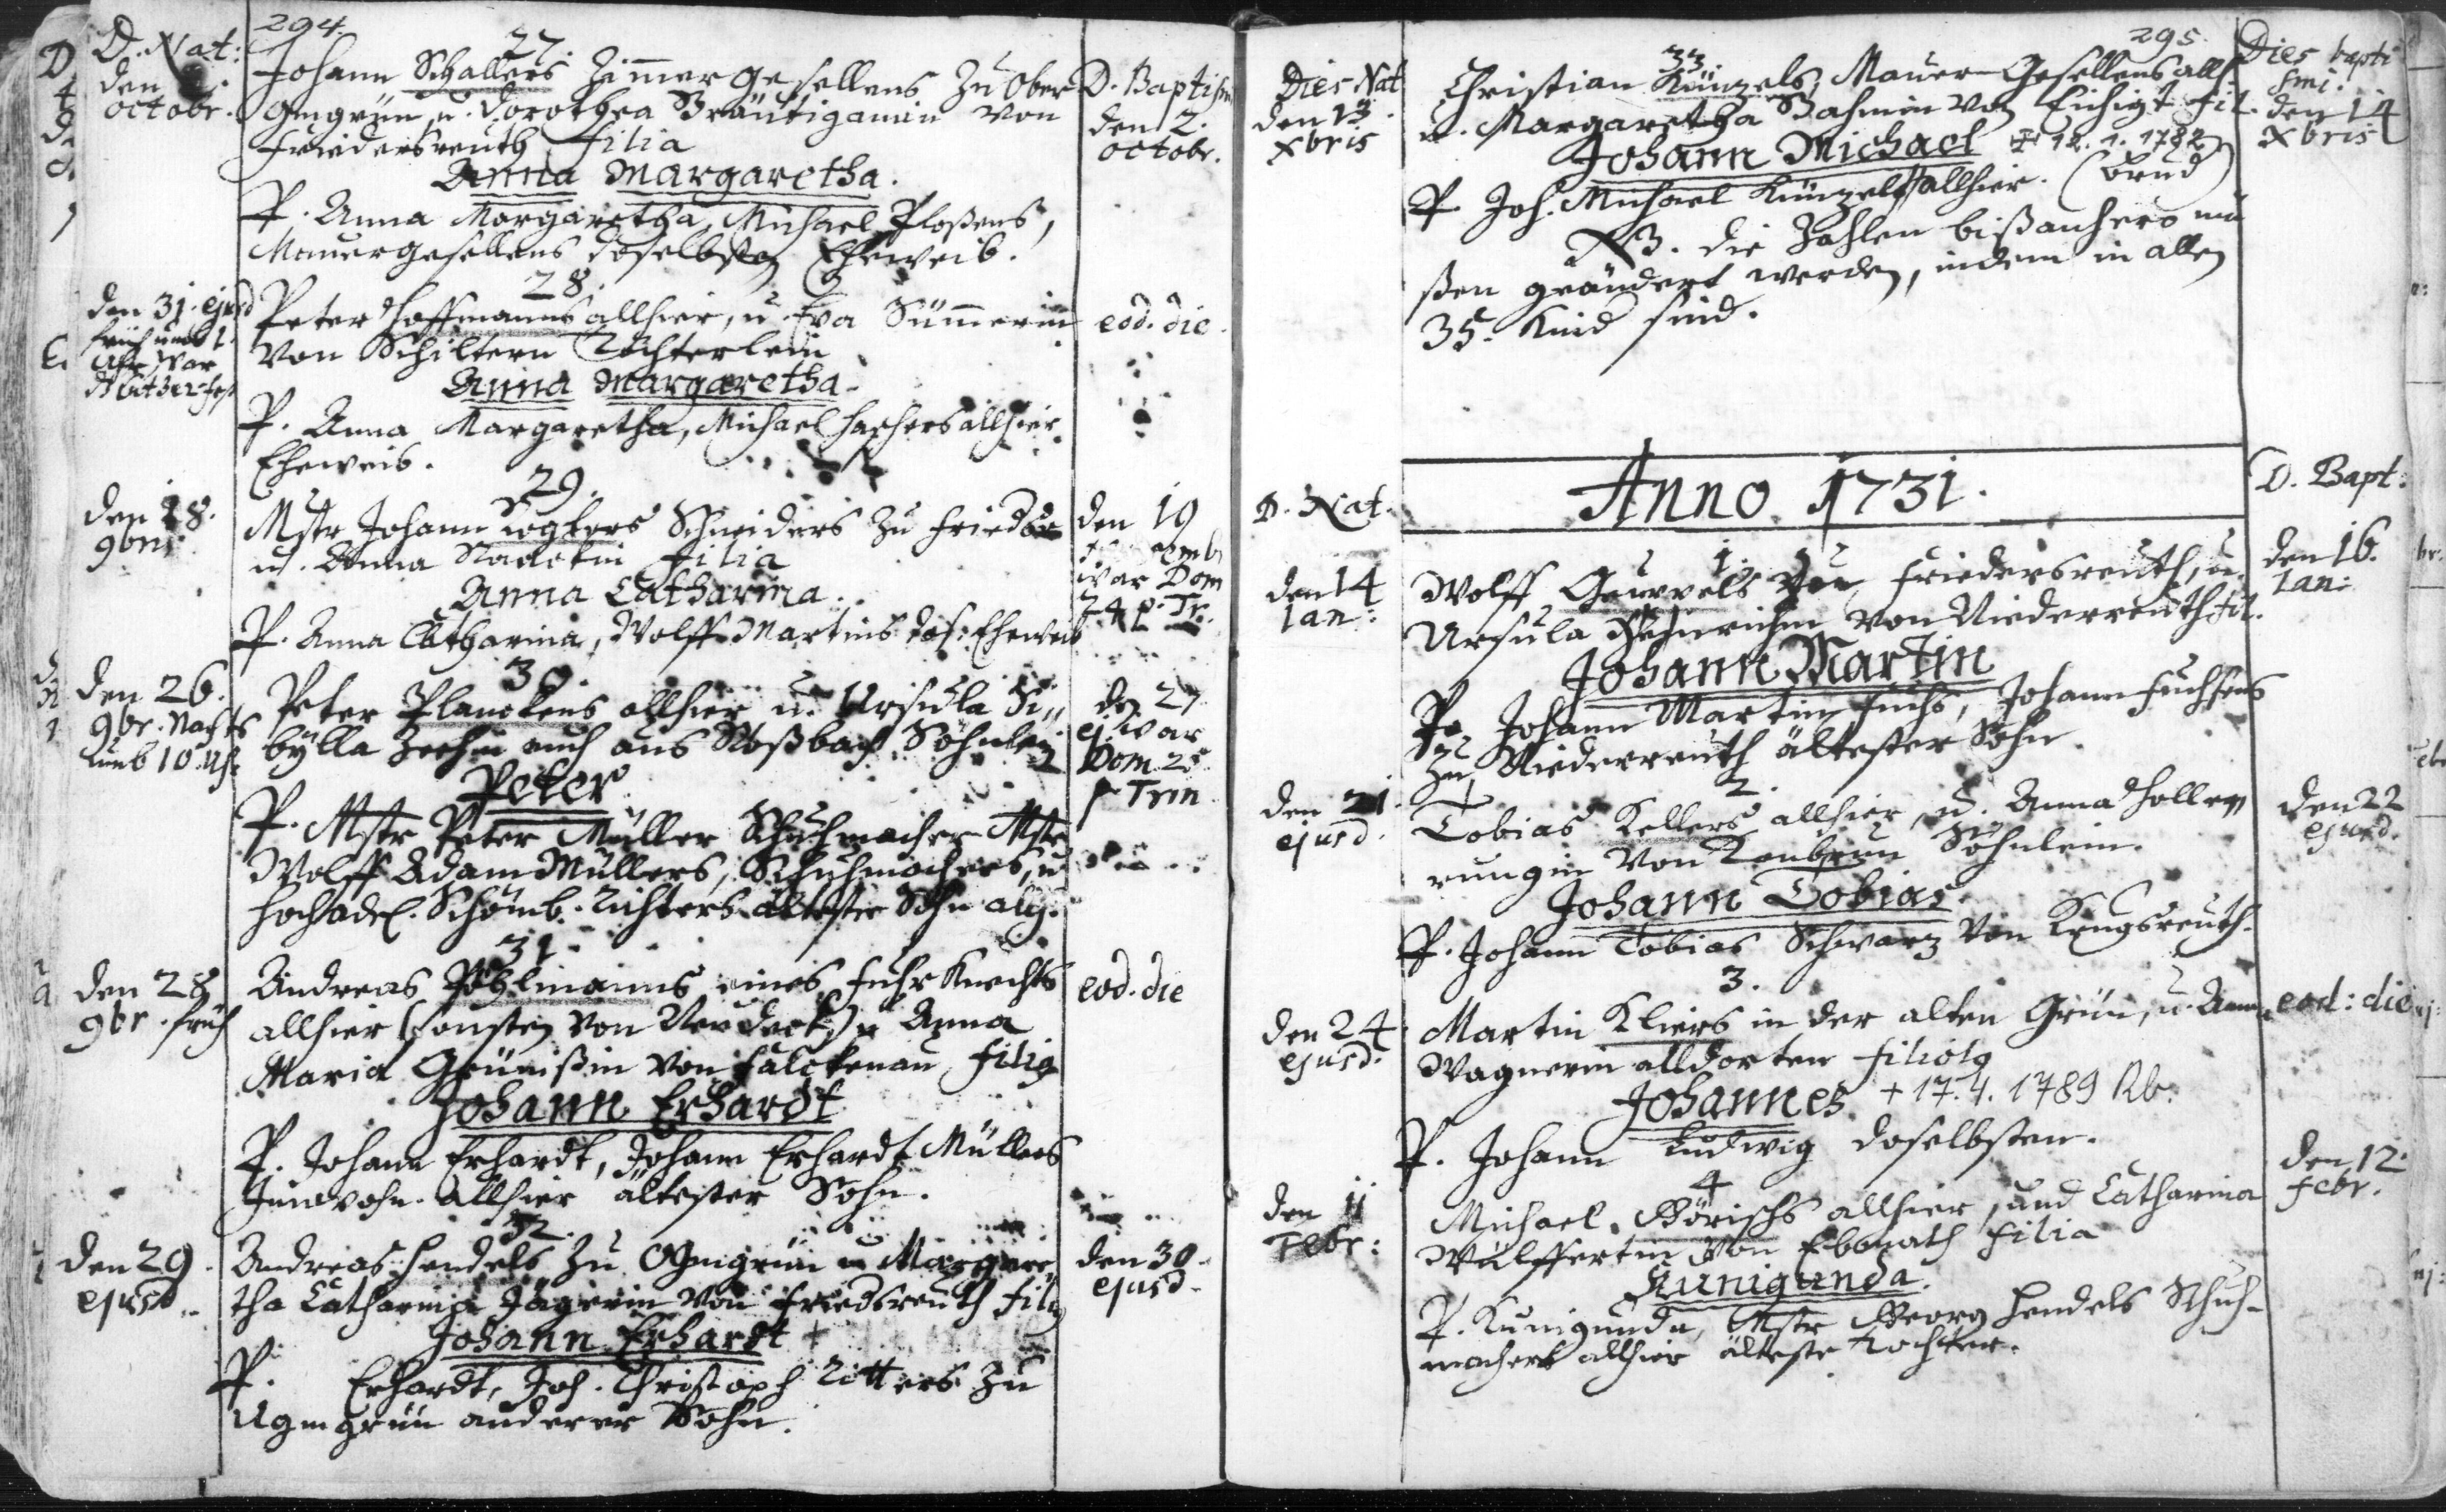 294.
D. Nat:
den
octobr.
27.
Johann Schallers Zimmergesellens zu Ober
gmgrün, u. Dorothea Bräutigamin von
Friedersreuth filia
Anna Margaretha.
P. Anna Margaretha, Michael Ploßens,
Mauergesellens daselbsten Eheweib.
D. Baptism
den 2.
octobr.
den 31. ejusd
früh umb 1.
Uhr war
28.
Peter Hoffmanns allhier, u. Eva Summerin
von Schiltern Töchterlein
Anna Margaretha.
P. Anna Margaretha, Michael allhier
Eheweib.
eod. die.
den 18.
9bris
29.
Mstr Johann Schneiders zu Frieders
u. Anna filia
Anna Catharina.
P. Anna Catharina, Wolff Martins das: Eheweib
den 19
war Dom
24 p. Tr.
den 26.
9br. Nachts
umb 10 Uh.
30.
Peter Planckens allhier u. Ursula Si,,
bylla auch aus Roßbach Söhnlein
Peter
P. Mstr Peter Müller Schuhmacher Mstr
Wolff Adam Müllers, Schuhmachers, u
Hochadel. Schömb. Richters ältester Sohn alh.
den 27
ej. war
Dom 25
p Trin
den 28
9br. früh
31.
Andreas Pöhlmanns eines Fuhrknechts
allhier (sonsten von Neudeck) u Anna
Maria Grünißin von Falckenau filig
Johann Erhardt
P. Johann Erhardt, Johann Erhardt Müllers
Innwohn. allhier ältester Sohn.
eod. die
den 29.
ejusd.
32.
Andreas Hendels zu Ogmgrün u Margare
tha Catharina Jägerin von Friedsreuth filig
Johann Erhardt +
P. Erhardt, Joh. Christoph Ritters zu
Ugmgrün anderer Sohn.
den 30.
ejusd.
295.
Dies Nat
den 13.
Xbris
33.
Christian Künzels, Mauer-Gesellens allh
u. Margaretha von Eichigt fil.
Johann Michael + 12. 1. 1782
P. Joh. Michael Künzel allhier.
NB. die Zahlen bißanhero mü
ßen geändert werden, indem in allen
35. Kind sind.
Dies bapti
smi.
den 14
Xbris
D. Nat.
Anno 1731.
D. Bapt:
den 14
Ian:
1.
Wolff Geuppels von Friedersreuth, u.
Ursula von Niederreuth fil.
Johann Martin
P. Johann Martin Fuchs, Johann Fuchsens
zu Niederreuth ältester Sohn.
den 16.
Ian:
den 21.
ejusd.
2.
Tobias Kellers allhier, u. Anna
rungin von Söhnlein.
Johann Tobias.
P. Johann Tobias Schwarz von Krugsreuth.
den 22
ejusd.
den 24.
ejusd.
3.
Martin Kliers in der alten Grün, u. Anna
Wagnerin alldorten filiolg
Johannes. + 17. 4. 1789 Rb.
P. Johann Ludwig daselbsten.
eod: die
den 11
Febr:
4
Michael Börischs allhier, und Catharina
Wülffertin von Ebbnath filia
Kunigunda.
P. Kunigunda, Mstr Georg Hendels Schuh-
machers allhier älteste Tochter.
den 12.
Febr.